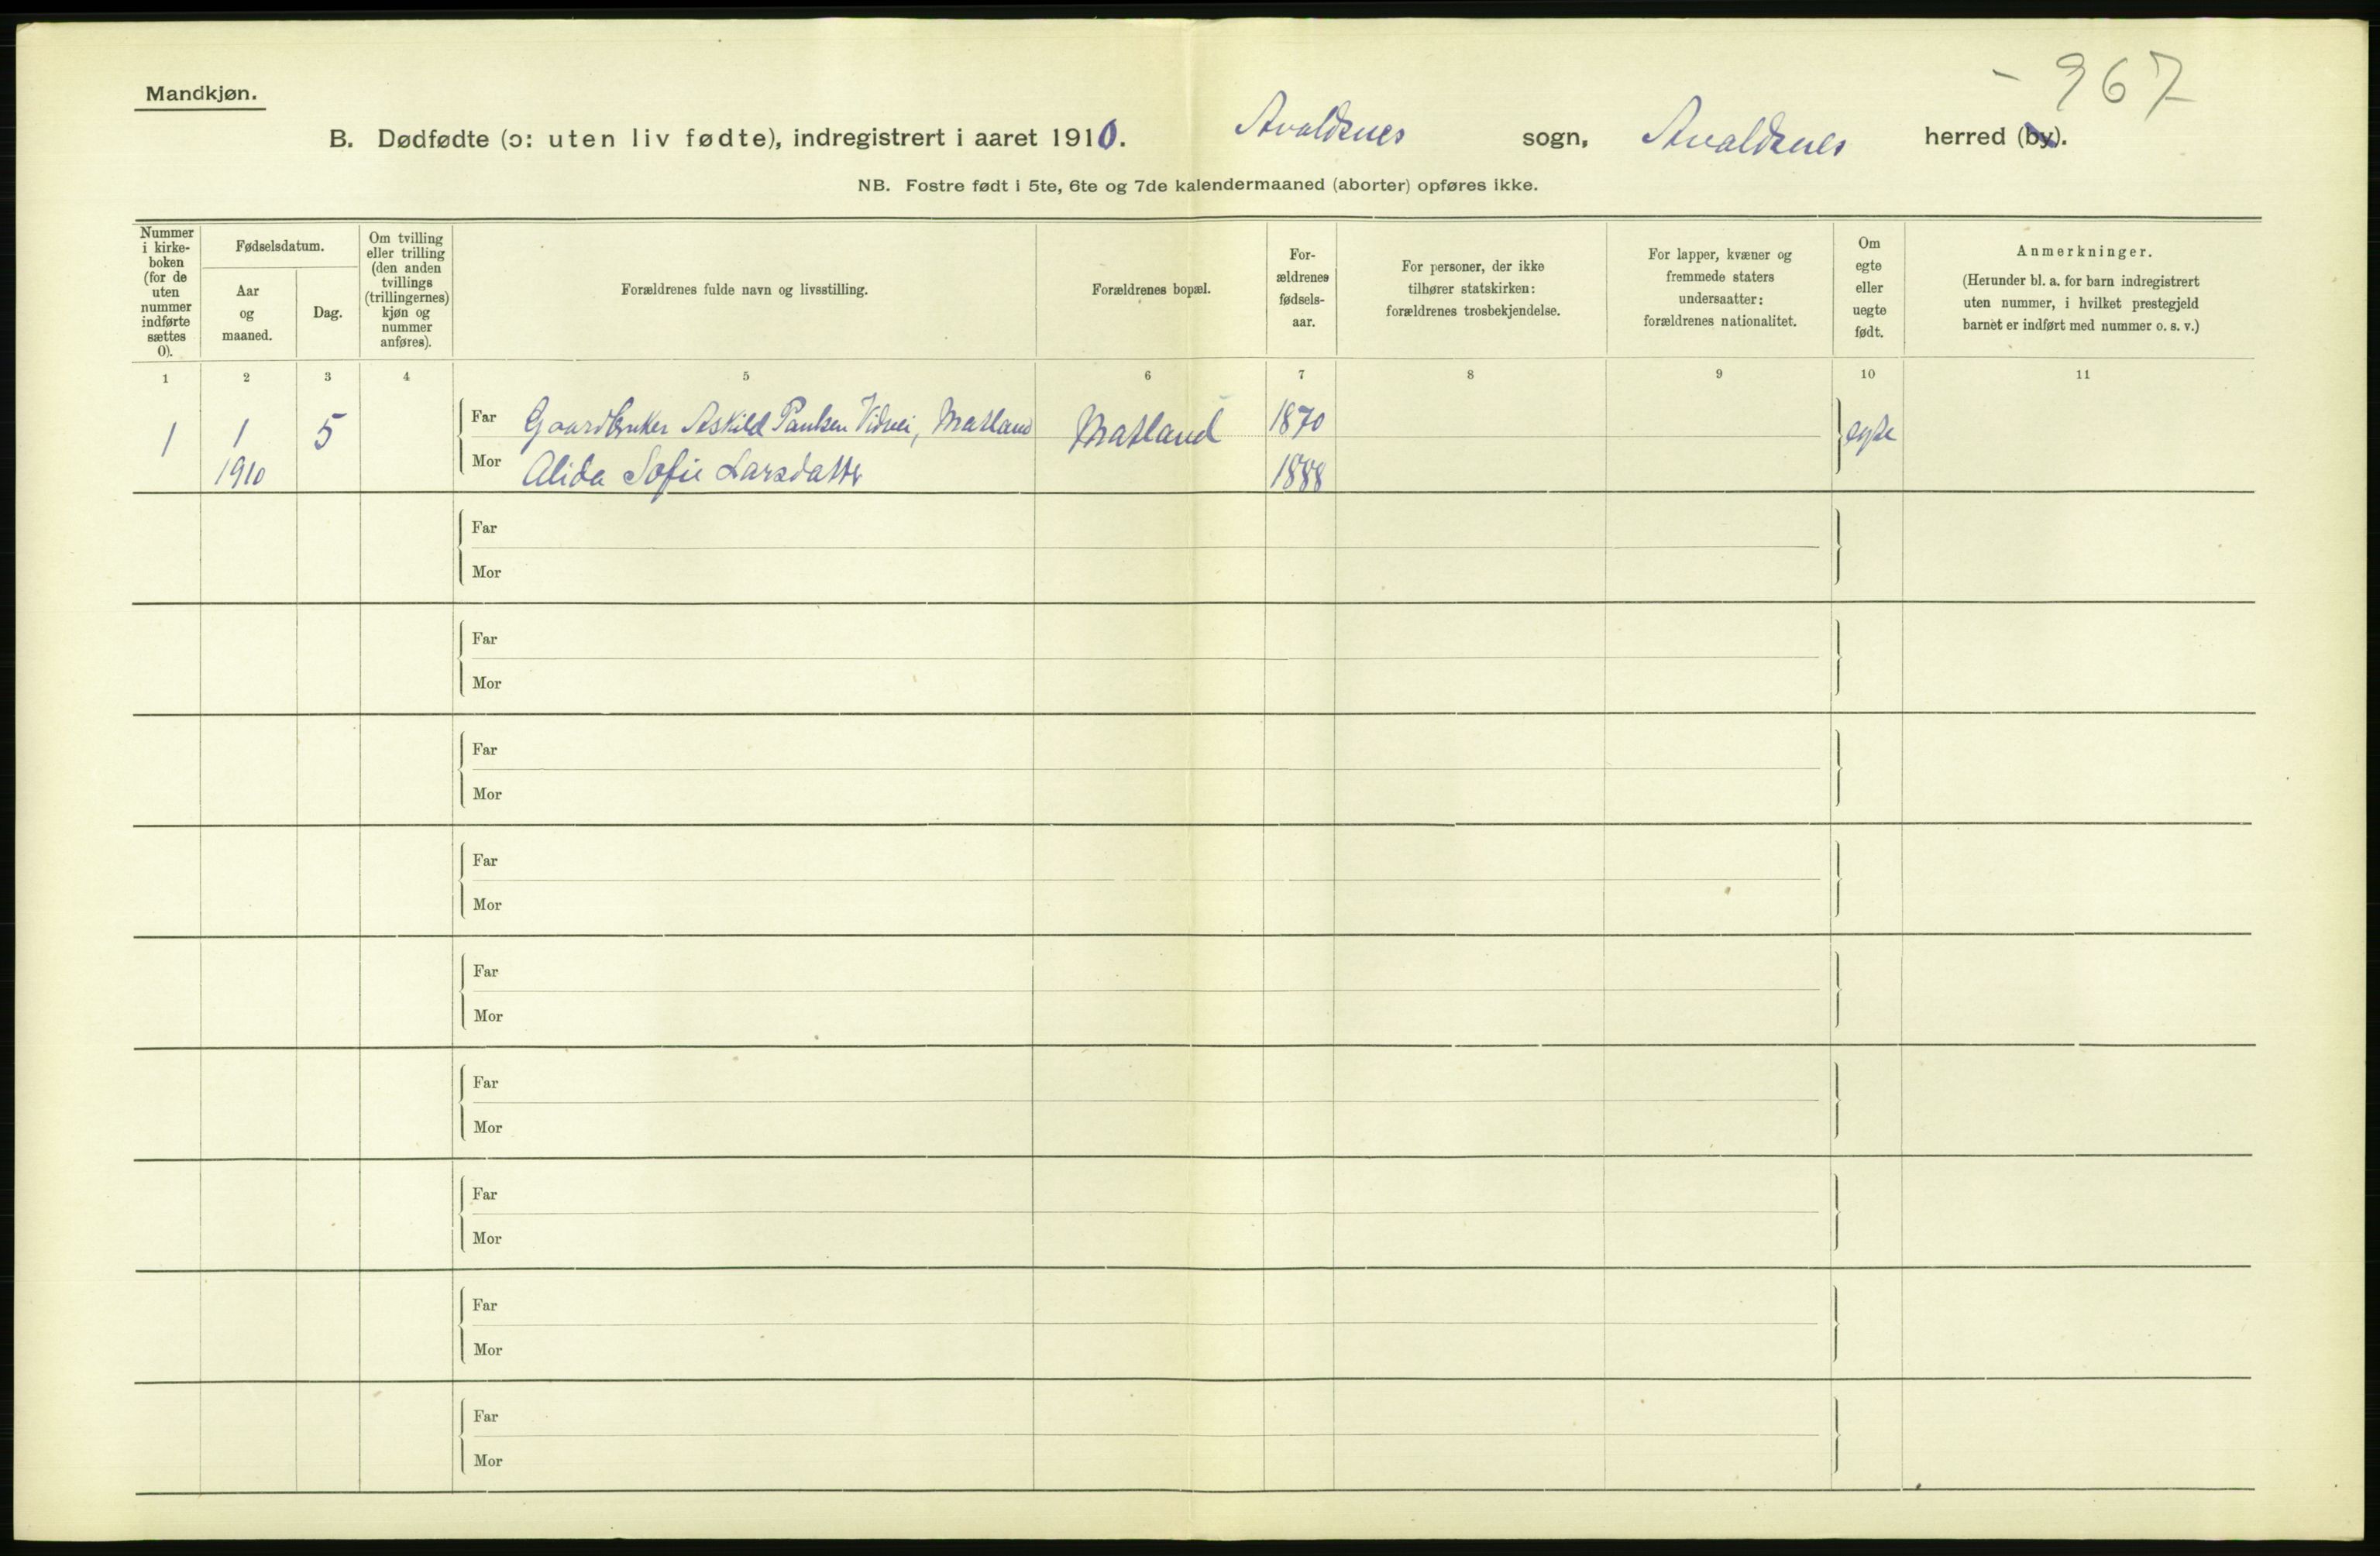 - 967
Mandkjøn.
B. Dødfødte (ɔ: uten liv fødte), indregistrert i aaret 1910. Avaldsnes sogn, Avaldsnes herred (by).
NB. Fostre født i 5te, 6te og 7de kalendermaaned (aborter) opføres ikke.
Nummer i kirke-boken (for de uten nummer indførte sættes 0).
Fødselsdatum.
Aar og maaned.
Dag.
Om tvilling eller trilling (den anden tvillings (trillingernes) kjøn og nummer anføres).
Forældrenes fulde navn og livsstilling.
Forældrenes bopæl.
For-ældrenes fødsels-aar.
For personer, der ikke tilhører statskirken: forældrenes trosbekjendelse.
For lapper, kvæner og fremmede staters undersaatter: forældrenes nationalitet.
Om egte eller uegte født.
Anmerkninger.
(Herunder bl. a. for barn indregistrert uten nummer, i hvilket prestegjeld barnet er indført med nummer o. s. v.)
1 2 3 4 5 6 7 8 9 10 11
1 1 5 Far Gaardbruker Askild Paulsen Matland Matland 1870 egte
1910 Mor Alida Sofie Larsdatter 1888
Far
Mor
Far
Mor
Far
Mor
Far
Mor
Far
Mor
Far
Mor
Far
Mor
Far
Mor
Far
Mor